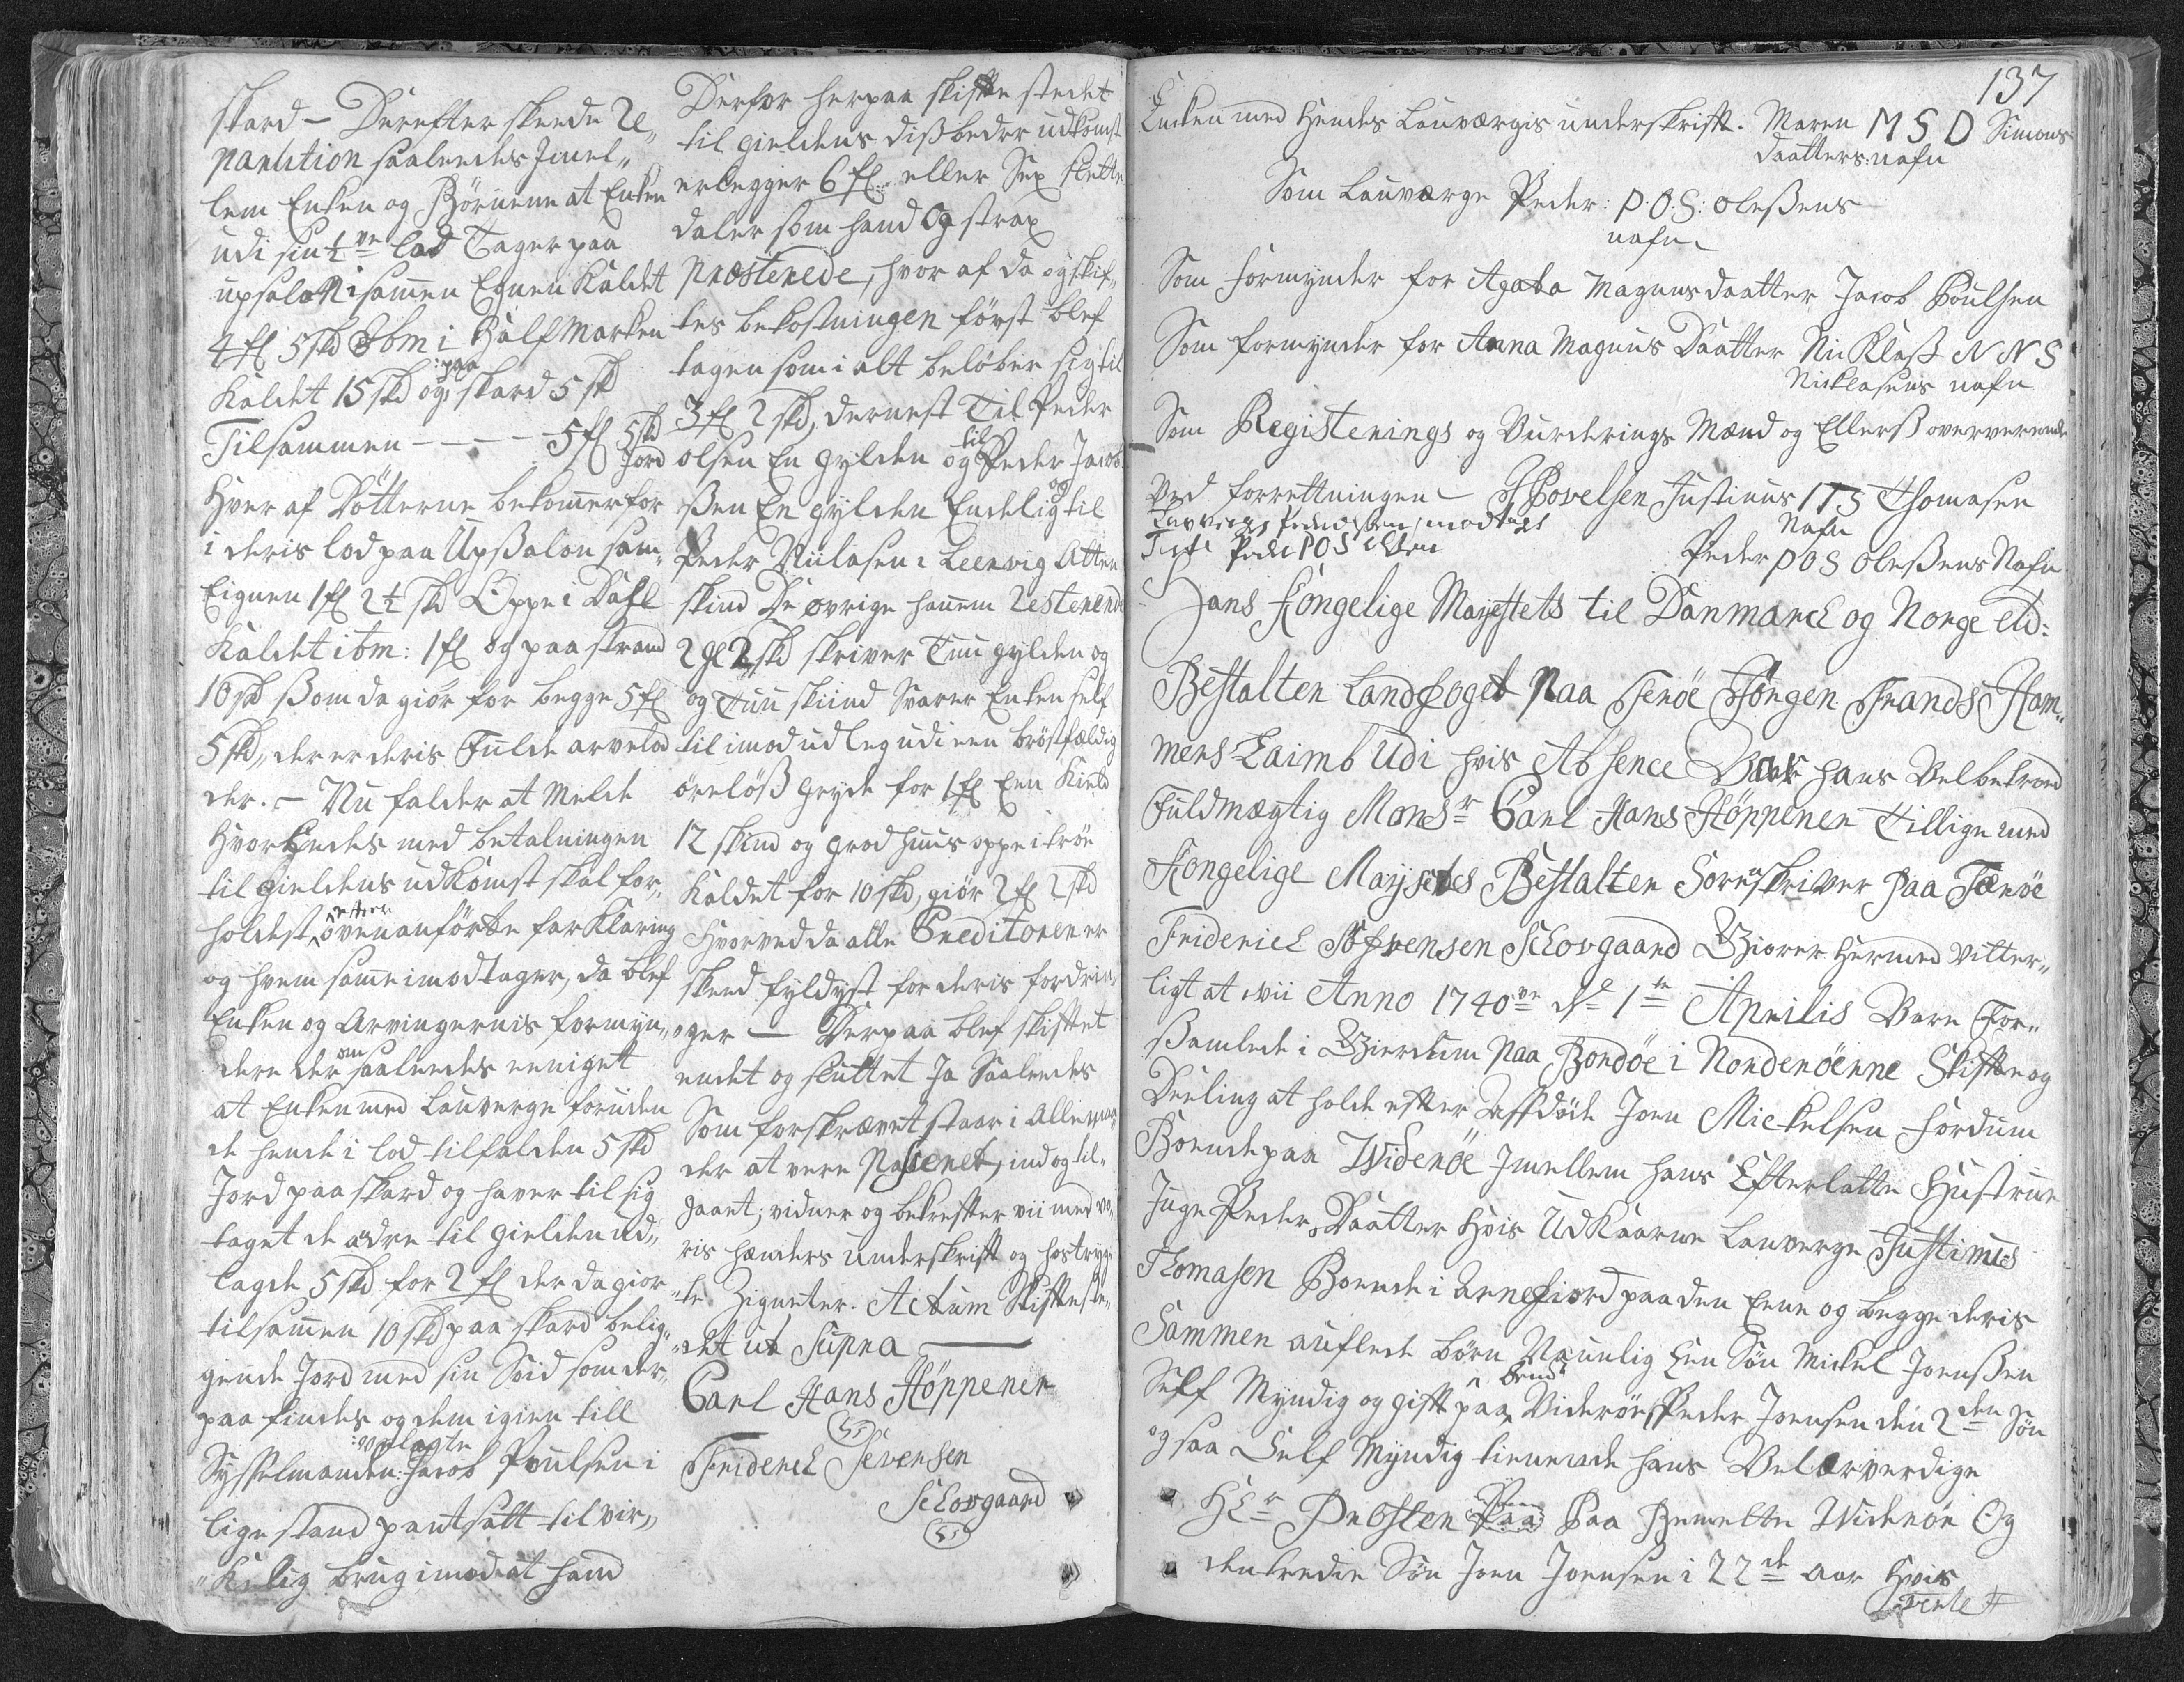 skard – Derefter skeede Re„
partition saaledes Imel„
lem Enken og Börnene at Enken
udi sin ½ve lod Tager paa
upsalon i samen Eignen Kaldet
4 fl 5 skd ibm i Half Marken
Kaldet 15 skd og :paa skard 5 sk
Tilsammen – – – – 5 fl 5 skd Jord
Hver af Döttrene bekommer for
i deris lod paa Upßalon sam„
Eignen 1 fl 2½ skd Oppe i Dahl
Kaldet ibm: 1 fl og paa strand
10 skd ßom da giör for begge 5 fl
5 skd„ der er deris Fulde arvelod
der. – Nu falder at Melde
Hvorledes med betalningen
til gieldens udkomst skal for„
holdest, efter ovenanförte forklaring
og hvem same imodtager, da blef
Enken og Arvingernis formyn„
dere der om saaledes eeniget
at Enken med Lauverge foruden
de hende i lod tilfalden 5 skd
Jord paa skard og haver til sig
taget de adre til gielden ud„
lagde 5 skd for 2 fl der da giör
tilsamen 10 skd paa skard belig„
gende Jord med sin Söid som der„
paa findes og dem igien till
Sysselmanden: Jacob Poulsen i
lige stand pantsatt til vir„
„kelig brug imod at hand
Derfor herpaa skifte stedet
til gieldens diß bedre udkomst
erlegger 6 fl. eller Sex slette
daler som hand Og strax
præsterede, hvor af da og skif„
tes bekostningen först blef
tagen som i alt beløber sig til
3 fl 2 skd, dernest Til Peder
olsen En gylden og til Peder Jacob
ßen En gylden Endelig og til
Peder Niclasen i Leervig Atten
skind De øvrige hanem Resterende
2 gl 2 skd skriver Tuu gylden og
og Tuu skiind Svarer Enken self
til imod udleg udi een bröstfældig
öreløß gryde for 1 fl Een Kield
12 skind og grod huus oppe i tröe
Kaldet for 10 skd, giör 2 fl 2 skd
Hvorved da alle Creditorer er
skeed fyldest for deris fordrin„
„ger — Derpaa blef skiftet
endet og sluttet Ja Saaledes
Som forskrævet staar i Alle maa„
der at vere Passeret, ind og til„
gaaet, vidner og bekrefter vii med vo„
ris hænders underskrift og hostryg„
„te Zigneter. Actum Skifteste„
„det ut Supra —
Carl Hans Höppener
Friderich Sevensen
Schovgaard
137
Encken med Hendes Lauvergis underskrift. Maren M S D Simons
daatters: nafn
Som Lauværge Peder: P.O.S: Oleßens
nafn
Som formynder for Agata Magnus daatter Jacob Poulsen
Som formynder for Anna Magnus Daatter Nicklaß N N S
Nicklasens nafn
Som Registerings og Vurderings Mænd og Ellerß oververende
Ved forrettningen – J Povelsen Justinus I T S Thomasen
Nafn
Peder P O S Oleßens Nafn
Hans Kongelige Mayestets til Danmarck og Norge etc:
Bestalter Landfoget Paa Feröe Jörgen Frands Ham„
mershaimb Udi hvis Absence Vare hans Velbetroed
Fuldmægtig Monsr Carl Hans Höppener Tillige med
Kongelige Mayestets Bestalter Sorenskriver Paa Færöe
Friderich Söfrensen Schovgaard Giorer Hermed vitter„
ligt at vii Anno 1740ve de 1te Aprilis Vare For„
ßamlede i Gierdum Paa Bordöe i Norderöerne Skifte og
Deeling at holde efter Affdöde Joen Mickelsen fordum
Boende paa Wideröe Imellem hans Efterlatte Hustrue
Inge Peders Daatter Hvis Udkaarne Lauverge Justinus
Thomasen Boende i Arnefiord paa den Eene og begge deris
Sammen auflede børn Naunlig Een Sön Mickel Joenßen
Self Myndig og gift paa Videröe, Peder Joensen den 2den Sön
ogsaa Self Myndig tienende hans Velærverdige
HEr Probsten Paa Bemelte Wideröe Og
den tredie Sön Joen Joensen i 22de Aar Hvis